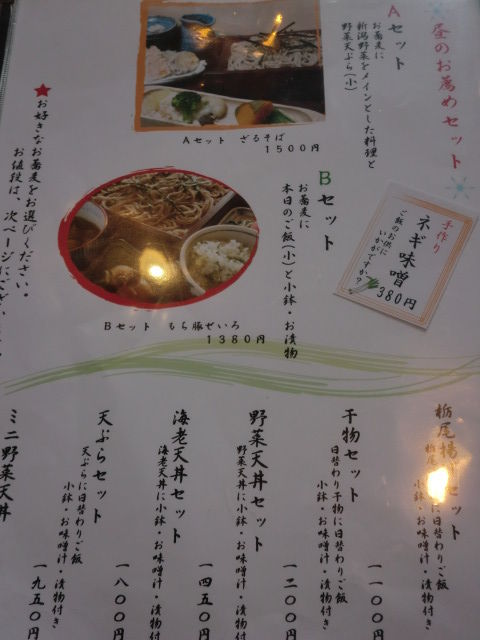 昼のお薦めセット
Aセット
お蕎麦に
新潟野菜をメインとした料理と
野菜天ぷら(小)
Aセット ざるそば
1500円
Bセット
お蕎麦に
本日のご飯(小)と小鉢・お漬物
Bセット もち豚せいろ
1380円
手作り
ネギ味噌
ご飯のお供に
いかがですか?
380円
★お好きなお蕎麦をお選びください。
お値段は、次ページにござ
栃尾揚
セット
栃尾
に日替わりご飯
小鉢・お味噌汁・漬物付き
一一〇〇円
干物セット
日替わり干物に日替わりご飯
小鉢・お味噌汁・漬物付き
一二〇〇円
野菜天丼セット
野菜天丼に小鉢・お味噌汁・漬物付
一四五〇円
海老天丼セット
海老天丼に小鉢・お味噌汁・漬物付
一八〇〇円
天ぷらセット
天ぷらに日替わりご飯
小鉢・お味噌汁・漬物付き
一九五〇円
ミニ野菜天丼